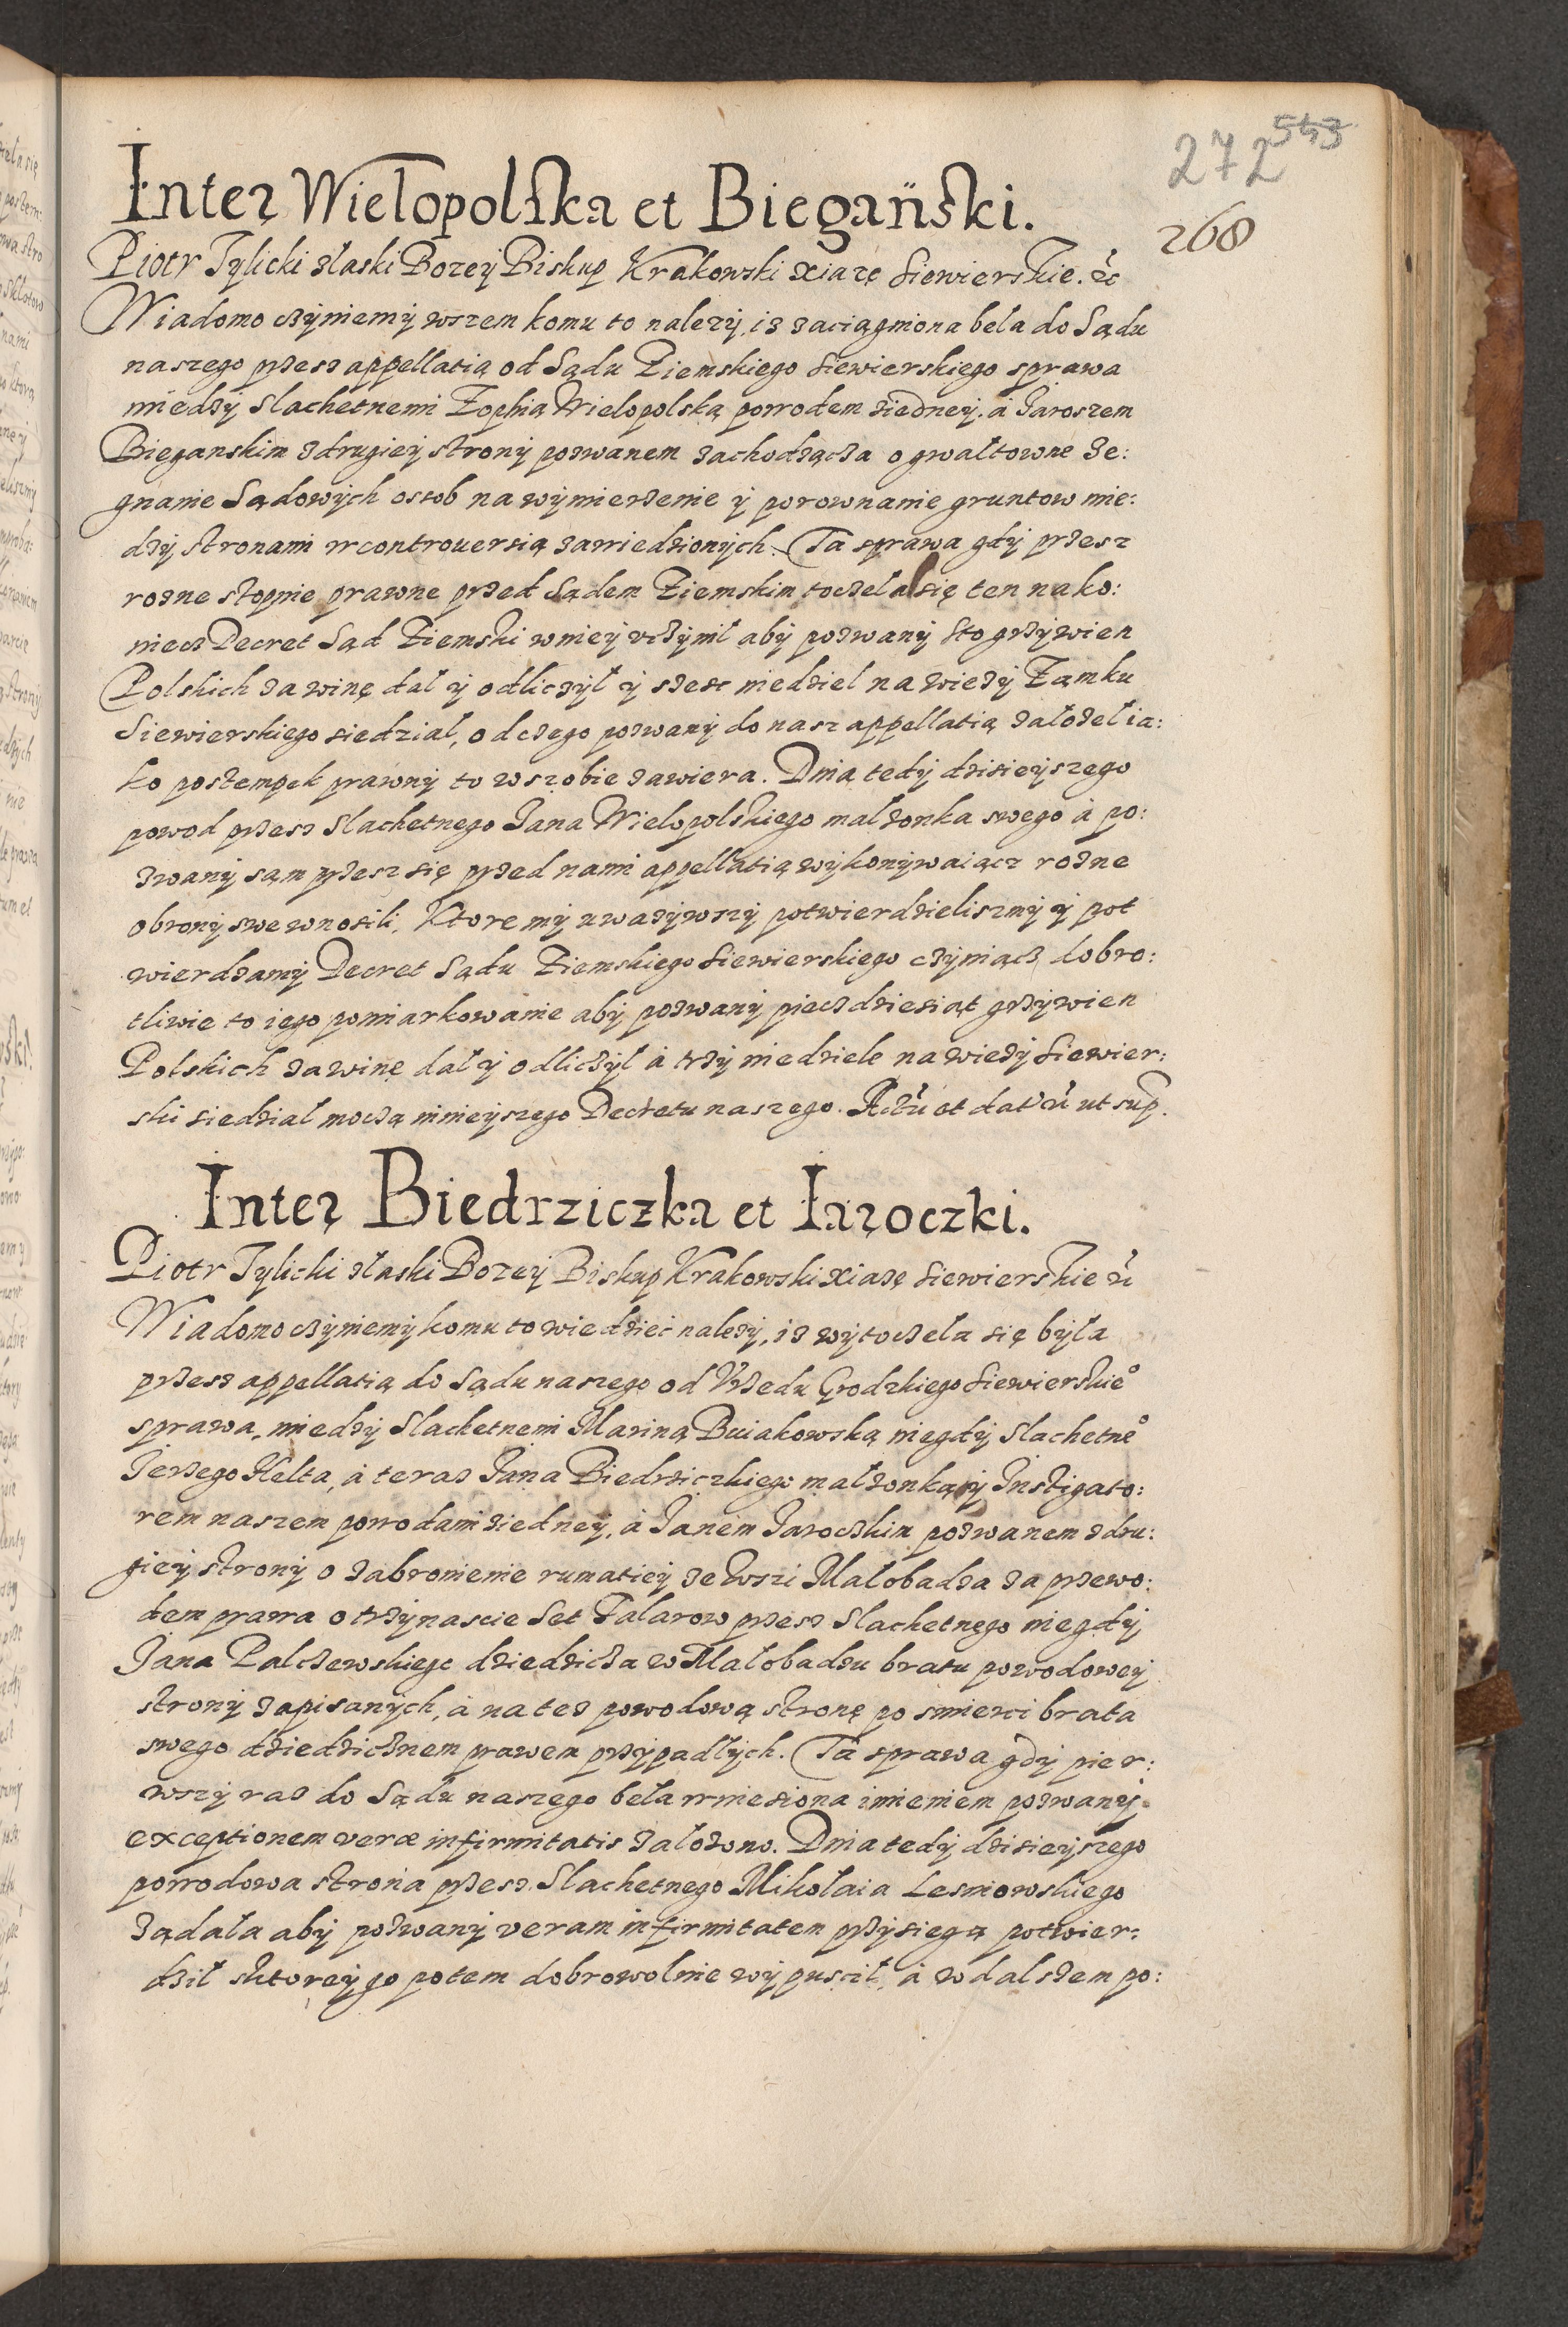 272 543
268
Inter Wielopolska et Biegański.
Piotr Tylicki zlaski Bozey Biskup Krakowski xiazę Siewierskie. &c
Wiadomo czyniemy wszem komu to nalezy, iz zaciągniona bela do Sądu
naszego przez appellatią od Sądu Ziemskiego Siewierskiego sprawa
miedzy Slachetnemi Zophią Wielopolską powodem ziedney, à Jaroszem
Bieganskim zdrugiey strony pozwanem zachodząca o gwałtowne ze:
gnanie Sądowych osob na wymierzenie y porownanie gruntow mie:
dzy stronami w controuersią zawiedzionych. Ta sprawa gdy przesz
rozne stopnie prawne przed Sądem Ziemskim toczela się ten nako:
niecz Decret Sąd Ziemski w niey vczynił aby pozwany sto grzywien
Polskich za winę dał y odliczył y szesc niedziel na wiezy Zamku
Siewierskiego siedział, od czego pozwany do nasz appellatią założeł ia:
ko postempek prawny to w szobie zawiera. Dnia tedy dzisieyszego
powod przez Slachetnego Jana Wielopolskiego malzonka swego à po:
zwany sąm przesz się przed nami appellatią wykonywaiącz rozne
obrony swe wnosili, Ktore my uwazywszy potwierdzieliszmy y pot
wierdzamy Decret Sądu Ziemskiego Siewierskiego czyniącz dobro:
tliwie to iego pomiarkowanie aby pozwany pieczdziesiąt grzywien
Polskich za winę dał y odliczył à trzy niedziele na wiezy Siewier:
ski siedział moczą ninieyszego Decretu naszego. Actũ et datũ ut sup.
Inter Biedrziczka et Iaroczki.
Piotr Tylicki złaski Bozey Biskup Krakowski xiazę Siewierskie &c
Wiadomo czyniemy komu to wiedzieć nalezy, iz wytoczela się była
przez appellatią do Sądu naszego od Vrzedu Grodzkiego Siewierskie°
sprawa, miedzy Slachetnemi Mariną Buiakowską niegdy Slachetne°
Jerzego Helta, à teraz Jana Biedrziczkiego malzonką y Instigato:
rem naszem powodami ziedney, à Janem Jaroczkim pozwanem zdru:
giey strony o zabronienie rumatiey ze wszi Małobadza za przewo:
dem prawa o trzynascie Set Talarow przez Slachetnego niegdy
Jana Palczewskiego dziedzicza w Małobadzu bratu powodowey
strony zapisanych, à na tez powodową stronę po smierci brata
swego dziedzicznem prawem przypadłych. Ta sprawa gdy pier:
wszy raz do Sądu naszego beła wniesiona imieniem pozwany.
exceptionem veræ infirmitatis założono. Dnia tedy dzisieyszego
powodowa strona przez Slachetnego Mikołaia Lesniowskiego
ządała aby pozwany veram infirmitatem przysiegą potwier:
dził sktorey go potem dobrowolnie wypuscił, à w dalszem po: